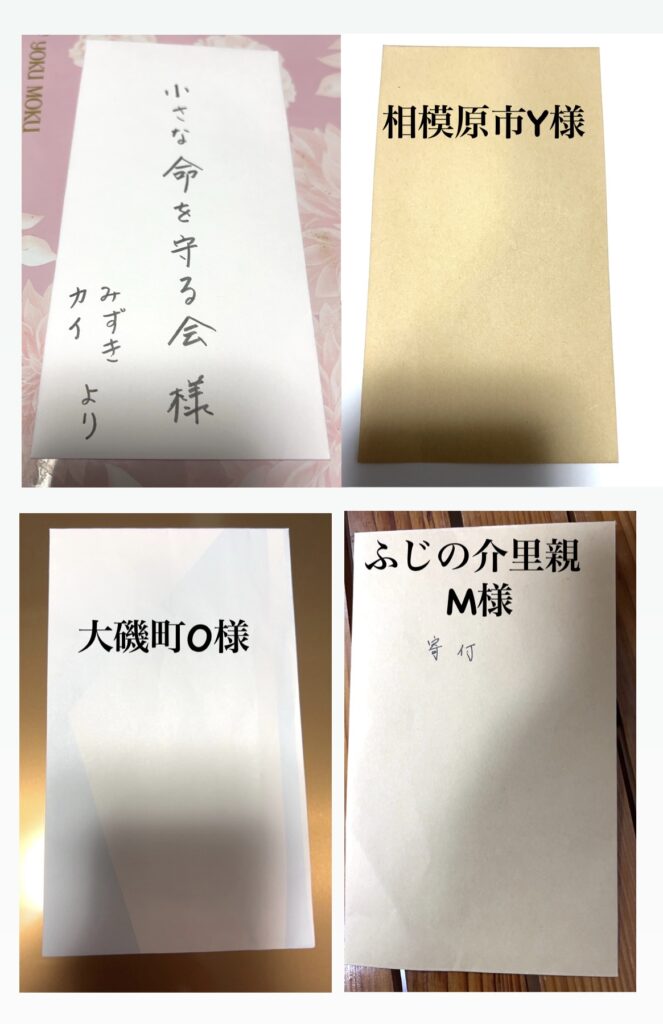 YOKU MOKU
小さな命を守る会様
みずき
カイ より
相模原市Y様
大磯町O様
ふじの介里親
M様
寄付